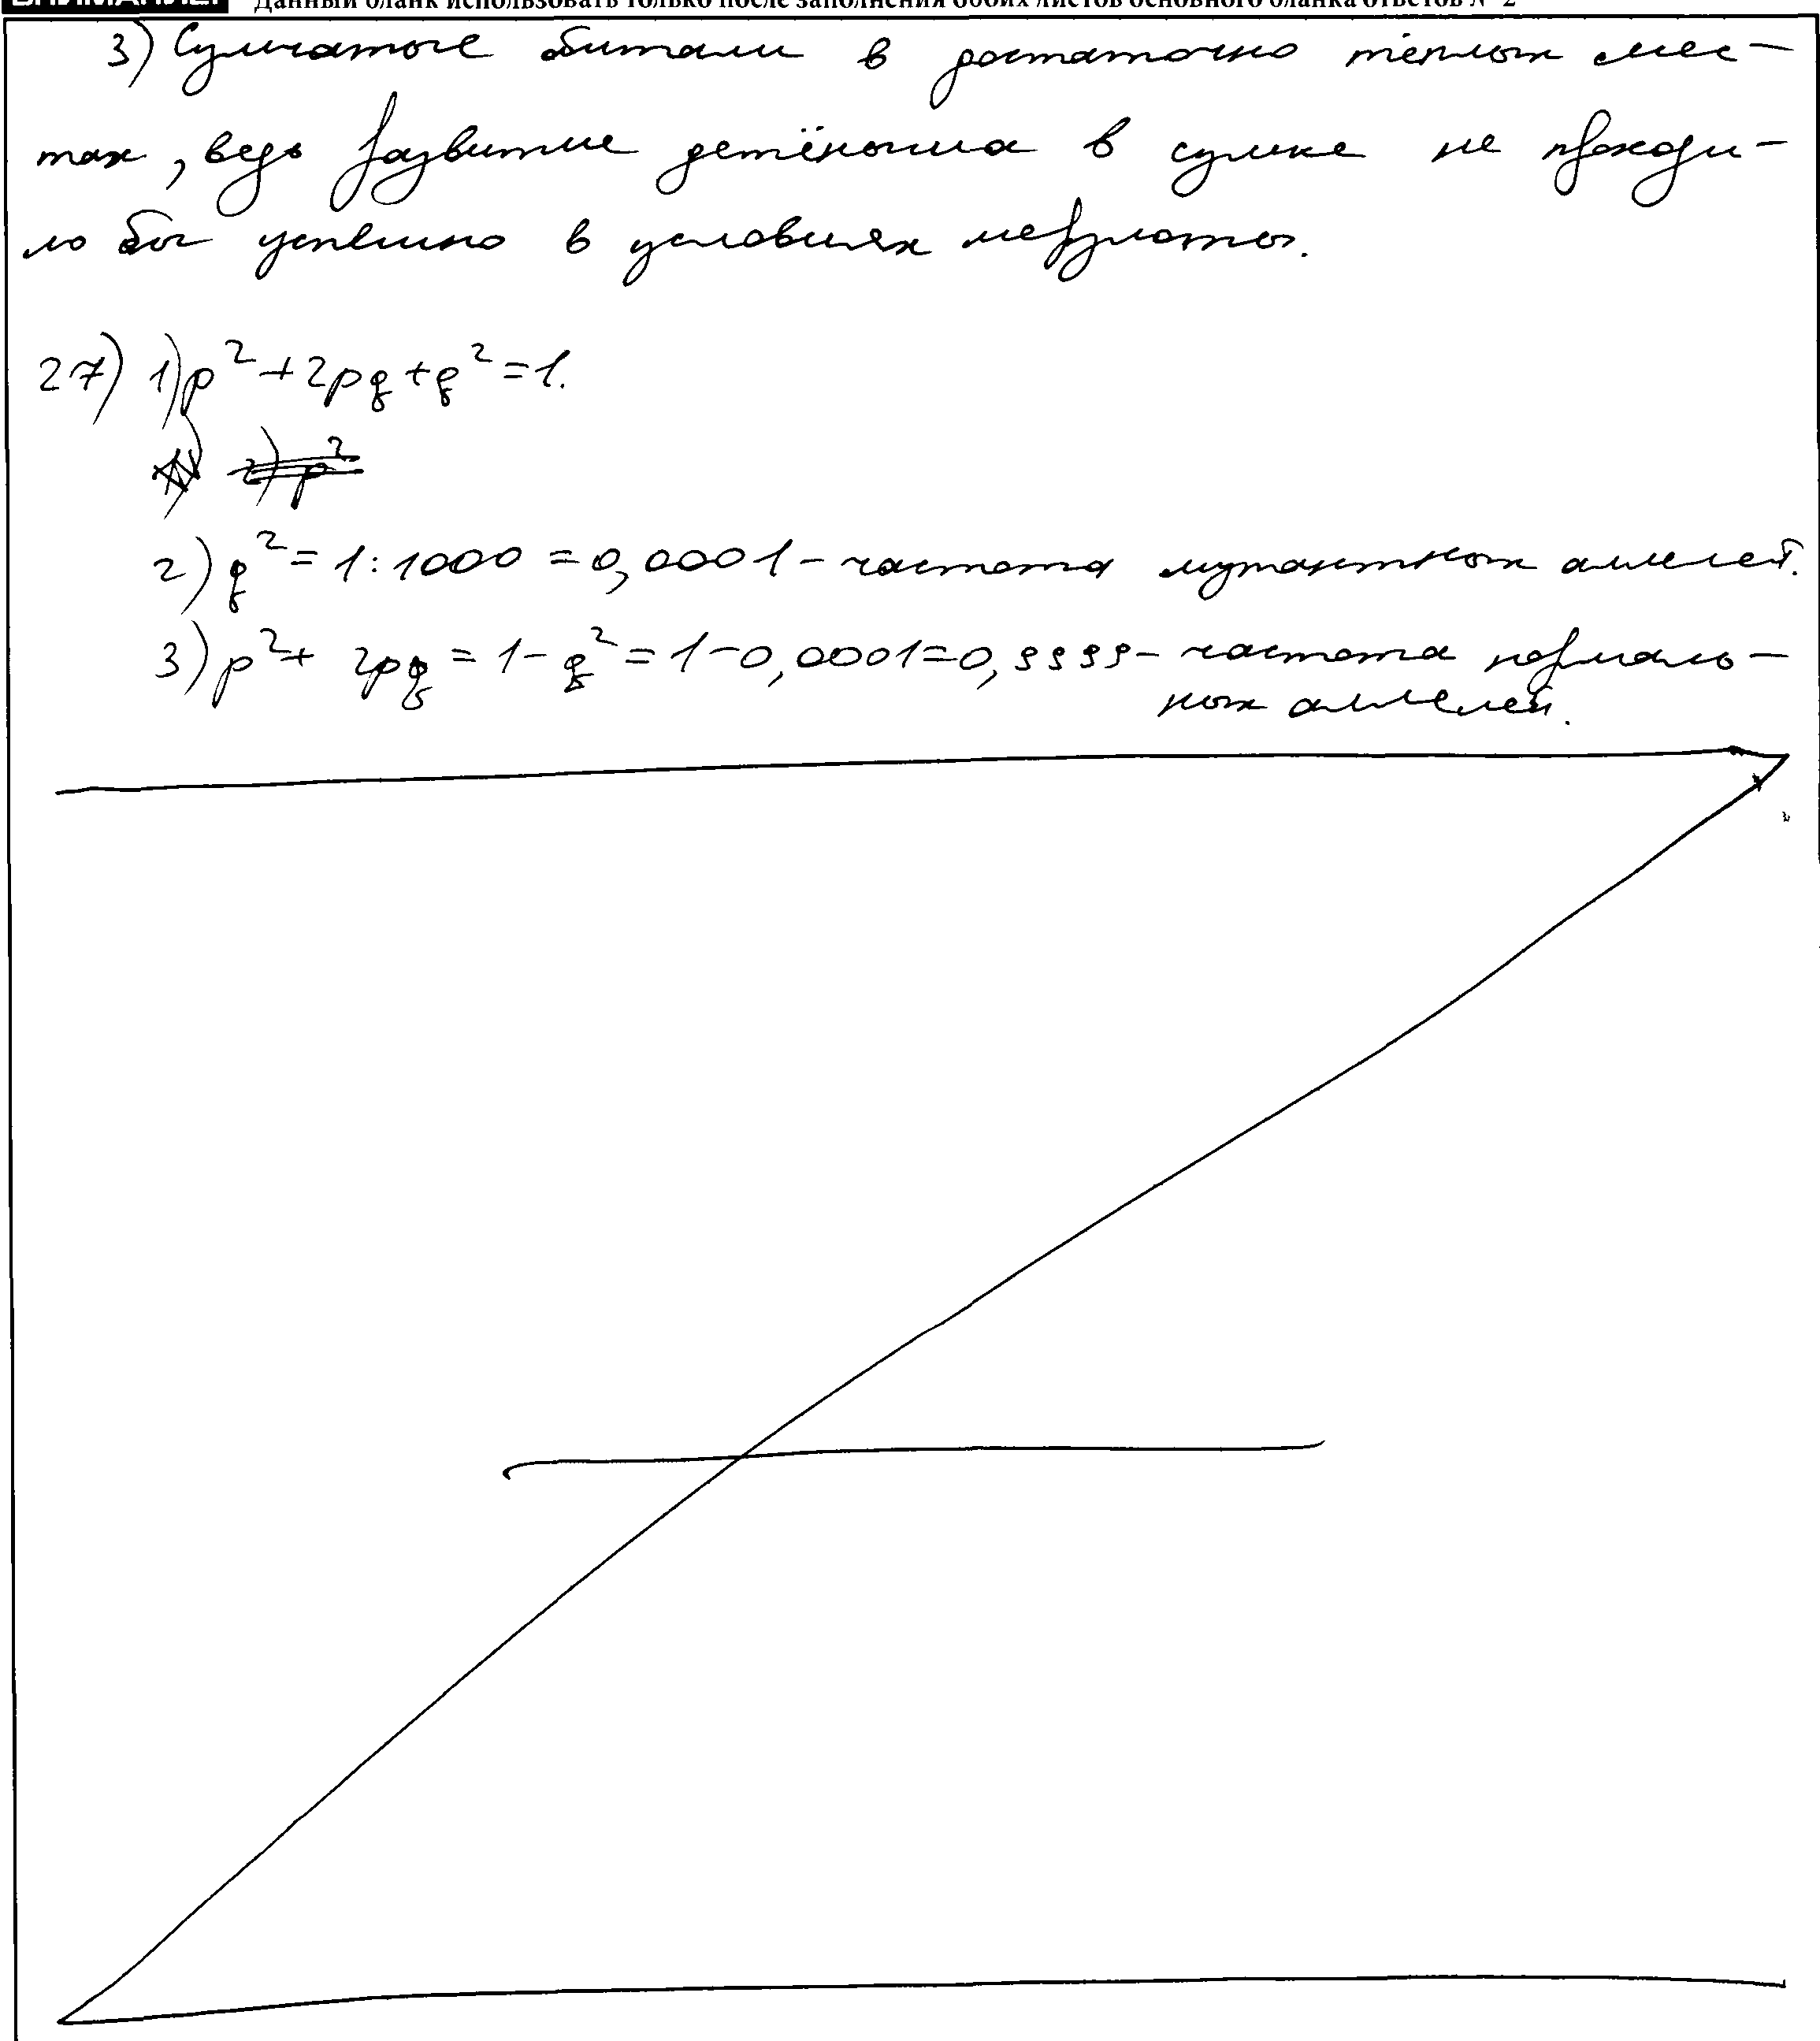 ВНИМАНИЕ! Данный бланк использовать только после заполнения обоих листов основного бланка ответов № 2
3) Сумчатые обитали в достаточно тёплых мес-
тах, ведь развитие детёныша в сумке не проходи-
ло бы успешно в условиях мерзлоты.
27) 1) p² + 2pq + q² = 1.
2) p²
2) q² = 1:1000 = 0,0001 - частота мутантных аллелей.
3) p² + 2pq = 1 - q² = 1 - 0,0001 = 0,9999 - частота нормаль-
ных аллелей.